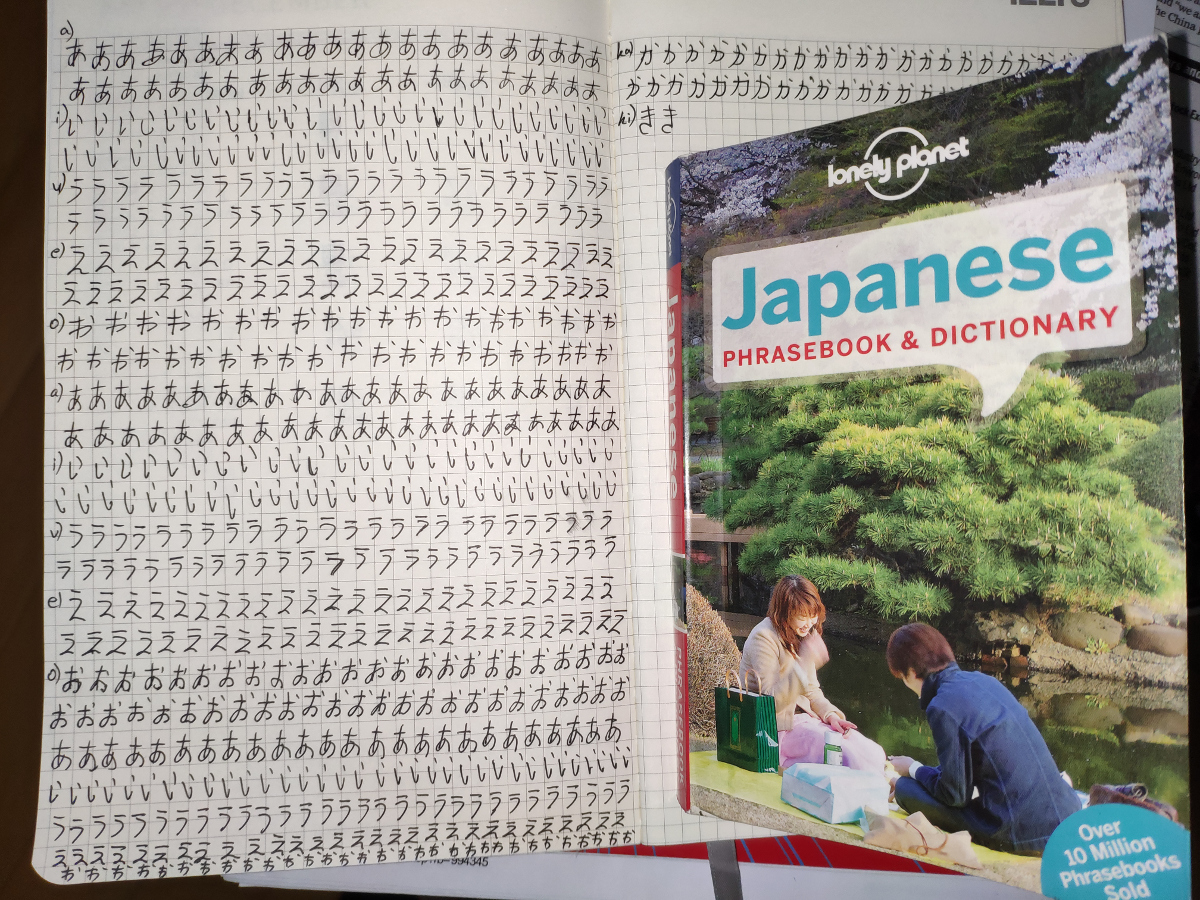 a)
ああああああああああああああああああああ
あああああああああああああああああああああ
i) いいいいいいいいいいいいいいいいいいいいいい
いいいいいいいいいいいいいいいいいいいいいいい
u) うううううううううううううううううううううう
ううううううううううううううううううううううう
e) えええええええええええええええええええええ
ええええええええええええええええええええええ
o) おおおおおおおおおおおおおおおおおおお
おおおおおおおおおおおおおおおおおおおお
a) あああああああああああああああああああああああ
ああああああああああああああああああああああ
i) いいいいいいいいいいいいいいいいいいいいいい
いいいいいいいいいいいいいいいいいいいいいいい
u) うううううううううううううううううううううう
ううううううううううううううううううううううう
e) ええええええええええええええええええええええ
えええええええええええええええええええええええ
o) おおおおおおおおおおおおおおおおおおおおおお
おおおおおおおおおおおおおおおおおおおおおおお
あああああああああああああああああああああああ
いいいいいいいいいいいいいいいいいいいいいいいい
うううううううううううううううううううううう
えええええええええええええええええええええええええ
おおおおおおおおおおおおおおおおおおおおおおおお
ka) かかかかかかかかかかかかかかかかかかかか
かかかかかかかかかかかかかかかか
ki) きき
lonely planet
Japanese
PHRASEBOOK & DICTIONARY
Over
10 Million
Phrasebooks
Sold
Japanese
PHRASEBOOK
994345